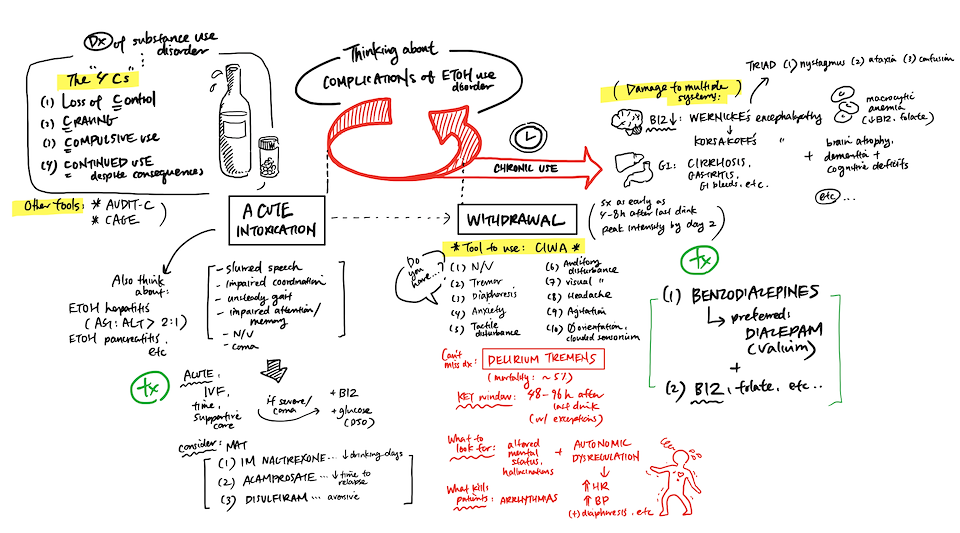 Dx of substance use
disorder
The "4 Cs"
(1) Loss of Control
(2) CRAVING
(3) COMPULSIVE USE
(4) CONTINUED USE
despite consequences
Other tools: * AUDIT-C
* CAGE
Thinking about
COMPLICATIONS of ETOH use
disorder
CHRONIC USE
TRIAD (1) nystagmus (2) ataxia (3) confusion
(Damage to multiple
systems:)
B12↓: WERNICKE's encephalopathy
↓
KORSAKOFF's "
GI: CIRRHOSIS,
GASTRITIS,
GI bleeds, etc.
macrocytic
anemia
(↓B12, folate)
+ brain atrophy,
dementia +
cognitive deficits
etc ...
ACUTE
INTOXICATION
Also think
about:
ETOH hepatitis
(AST:ALT > 2:1)
ETOH pancreatitis,
etc
- slurred speech
- impaired coordination
- unsteady gait
- impaired attention/
memory
- N/V
- coma
tx
ACUTE,
IVF,
time,
supportive
care
if severe/
coma
+ B12
+ glucose
(D50)
consider: MAT
(1) IM NALTREXONE ... ↓drinking days
(2) ACAMPROSATE ... ↓time to
relapse
(3) DISULFIRAM ... aversive
WITHDRAWAL
(sx as early as
4-8h after last drink
peak intensity by day 2)
* Tool to use: CIWA *
Do
you
have...?
(1) N/V
(2) Tremor
(3) Diaphoresis
(4) Anxiety
(5) Tactile
disturbance
(6) Auditory
disturbance
(7) visual "
(8) Headache
(9) Agitation
(10) Ø orientation,
clouded sensorium
Can't
miss dx: DELIRIUM TREMENS
(mortality: ~5%)
KEY window: 48-96h after
last drink
(w/ exceptions)
What to
look for: altered
mental
status,
hallucinations
+ AUTONOMIC
DYSREGULATION
↓
↑ HR
↑ BP
(+) diaphoresis, etc
What kills
patients: ARRHYTHMIAS
tx
(1) BENZODIAZEPINES
↳ preferred:
DIAZEPAM
(Valium)
+
(2) B12, folate, etc..